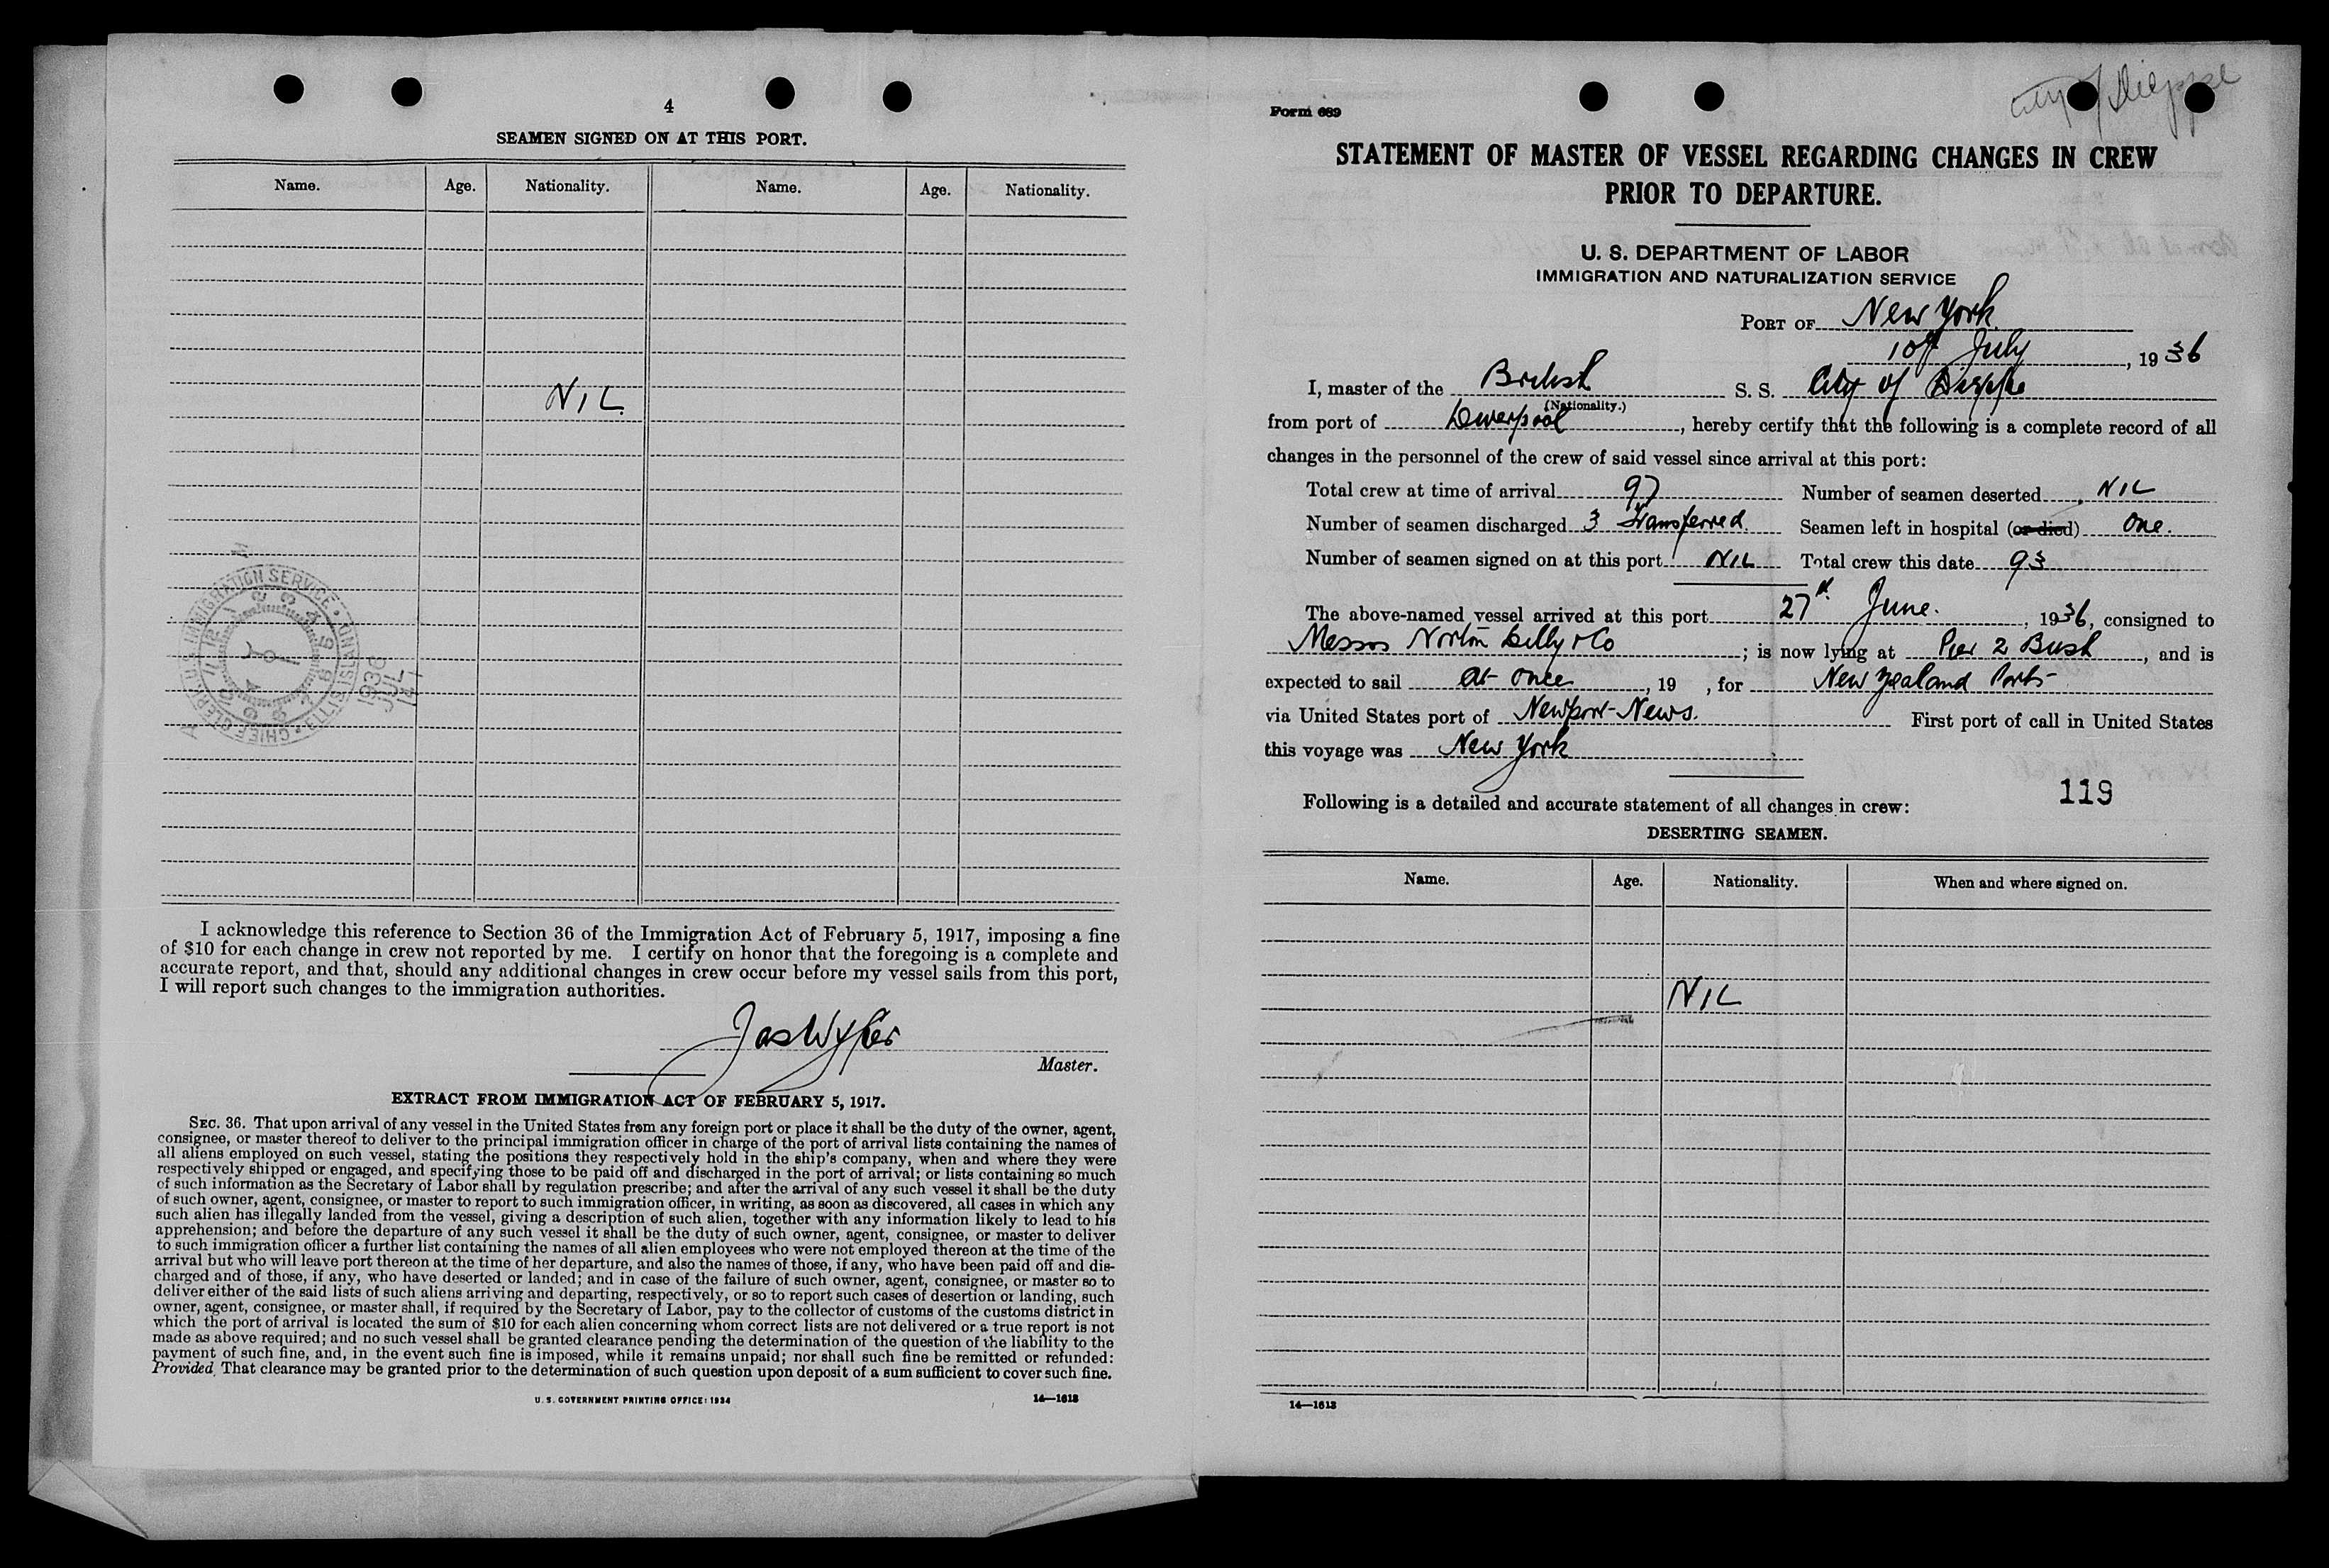 4
SEAMEN SIGNED ON AT THIS PORT.
Name. Age. Nationality. Name. Age. Nationality.
NIL
CHIEF CLERK U.S. IMMIGRATION SERVICE ELLIS ISLAND
1936 JUL 14
I acknowledge this reference to Section 36 of the Immigration Act of February 5, 1917, imposing a fine
of $10 for each change in crew not reported by me. I certify on honor that the foregoing is a complete and
accurate report, and that, should any additional changes in crew occur before my vessel sails from this port,
I will report such changes to the immigration authorities.
Master.
EXTRACT FROM IMMIGRATION ACT OF FEBRUARY 5, 1917.
SEC. 36. That upon arrival of any vessel in the United States from any foreign port or place it shall be the duty of the owner, agent,
consignee, or master thereof to deliver to the principal immigration officer in charge of the port of arrival lists containing the names of
all aliens employed on such vessel, stating the positions they respectively hold in the ship's company, when and where they were
respectively shipped or engaged, and specifying those to be paid off and discharged in the port of arrival; or lists containing so much
of such information as the Secretary of Labor shall by regulation prescribe; and after the arrival of any such vessel it shall be the duty
of such owner, agent, consignee, or master to report to such immigration officer, in writing, as soon as discovered, all cases in which any
such alien has illegally landed from the vessel, giving a description of such alien, together with any information likely to lead to his
apprehension; and before the departure of any such vessel it shall be the duty of such owner, agent, consignee, or master to deliver
to such immigration officer a further list containing the names of all alien employees who were not employed thereon at the time of the
arrival but who will leave port thereon at the time of her departure, and also the names of those, if any, who have been paid off and dis-
charged and of those, if any, who have deserted or landed; and in case of the failure of such owner, agent, consignee, or master so to
deliver either of the said lists of such aliens arriving and departing, respectively, or so to report such cases of desertion or landing, such
owner, agent, consignee, or master shall, if required by the Secretary of Labor, pay to the collector of customs of the customs district in
which the port of arrival is located the sum of $10 for each alien concerning whom correct lists are not delivered or a true report is not
made as above required; and no such vessel shall be granted clearance pending the determination of the question of the liability to the
payment of such fine, and, in the event such fine is imposed, while it remains unpaid; nor shall such fine be remitted or refunded:
Provided, That clearance may be granted prior to the determination of such question upon deposit of a sum sufficient to cover such fine.
U. S. GOVERNMENT PRINTING OFFICE: 1934 14—1613
City of Dieppe
Form 689
STATEMENT OF MASTER OF VESSEL REGARDING CHANGES IN CREW
PRIOR TO DEPARTURE.
U. S. DEPARTMENT OF LABOR
IMMIGRATION AND NATURALIZATION SERVICE
PORT OF New York
10th July, 1936
I, master of the British S. S. City of Dieppe
(Nationality.)
from port of Liverpool, hereby certify that the following is a complete record of all
changes in the personnel of the crew of said vessel since arrival at this port:
Total crew at time of arrival 97 Number of seamen deserted NIL
Number of seamen discharged 3 Transferred Seamen left in hospital (or died) One.
Number of seamen signed on at this port NIL Total crew this date 93
The above-named vessel arrived at this port 27th June., 1936, consigned to
Messrs Norton Lilly & Co; is now lying at Pier 2 Bush, and is
expected to sail at once, 19 , for New Zealand Ports
via United States port of Newport News. First port of call in United States
this voyage was New York
119
Following is a detailed and accurate statement of all changes in crew:
DESERTING SEAMEN.
Name. Age. Nationality. When and where signed on.
NIL
14—1613